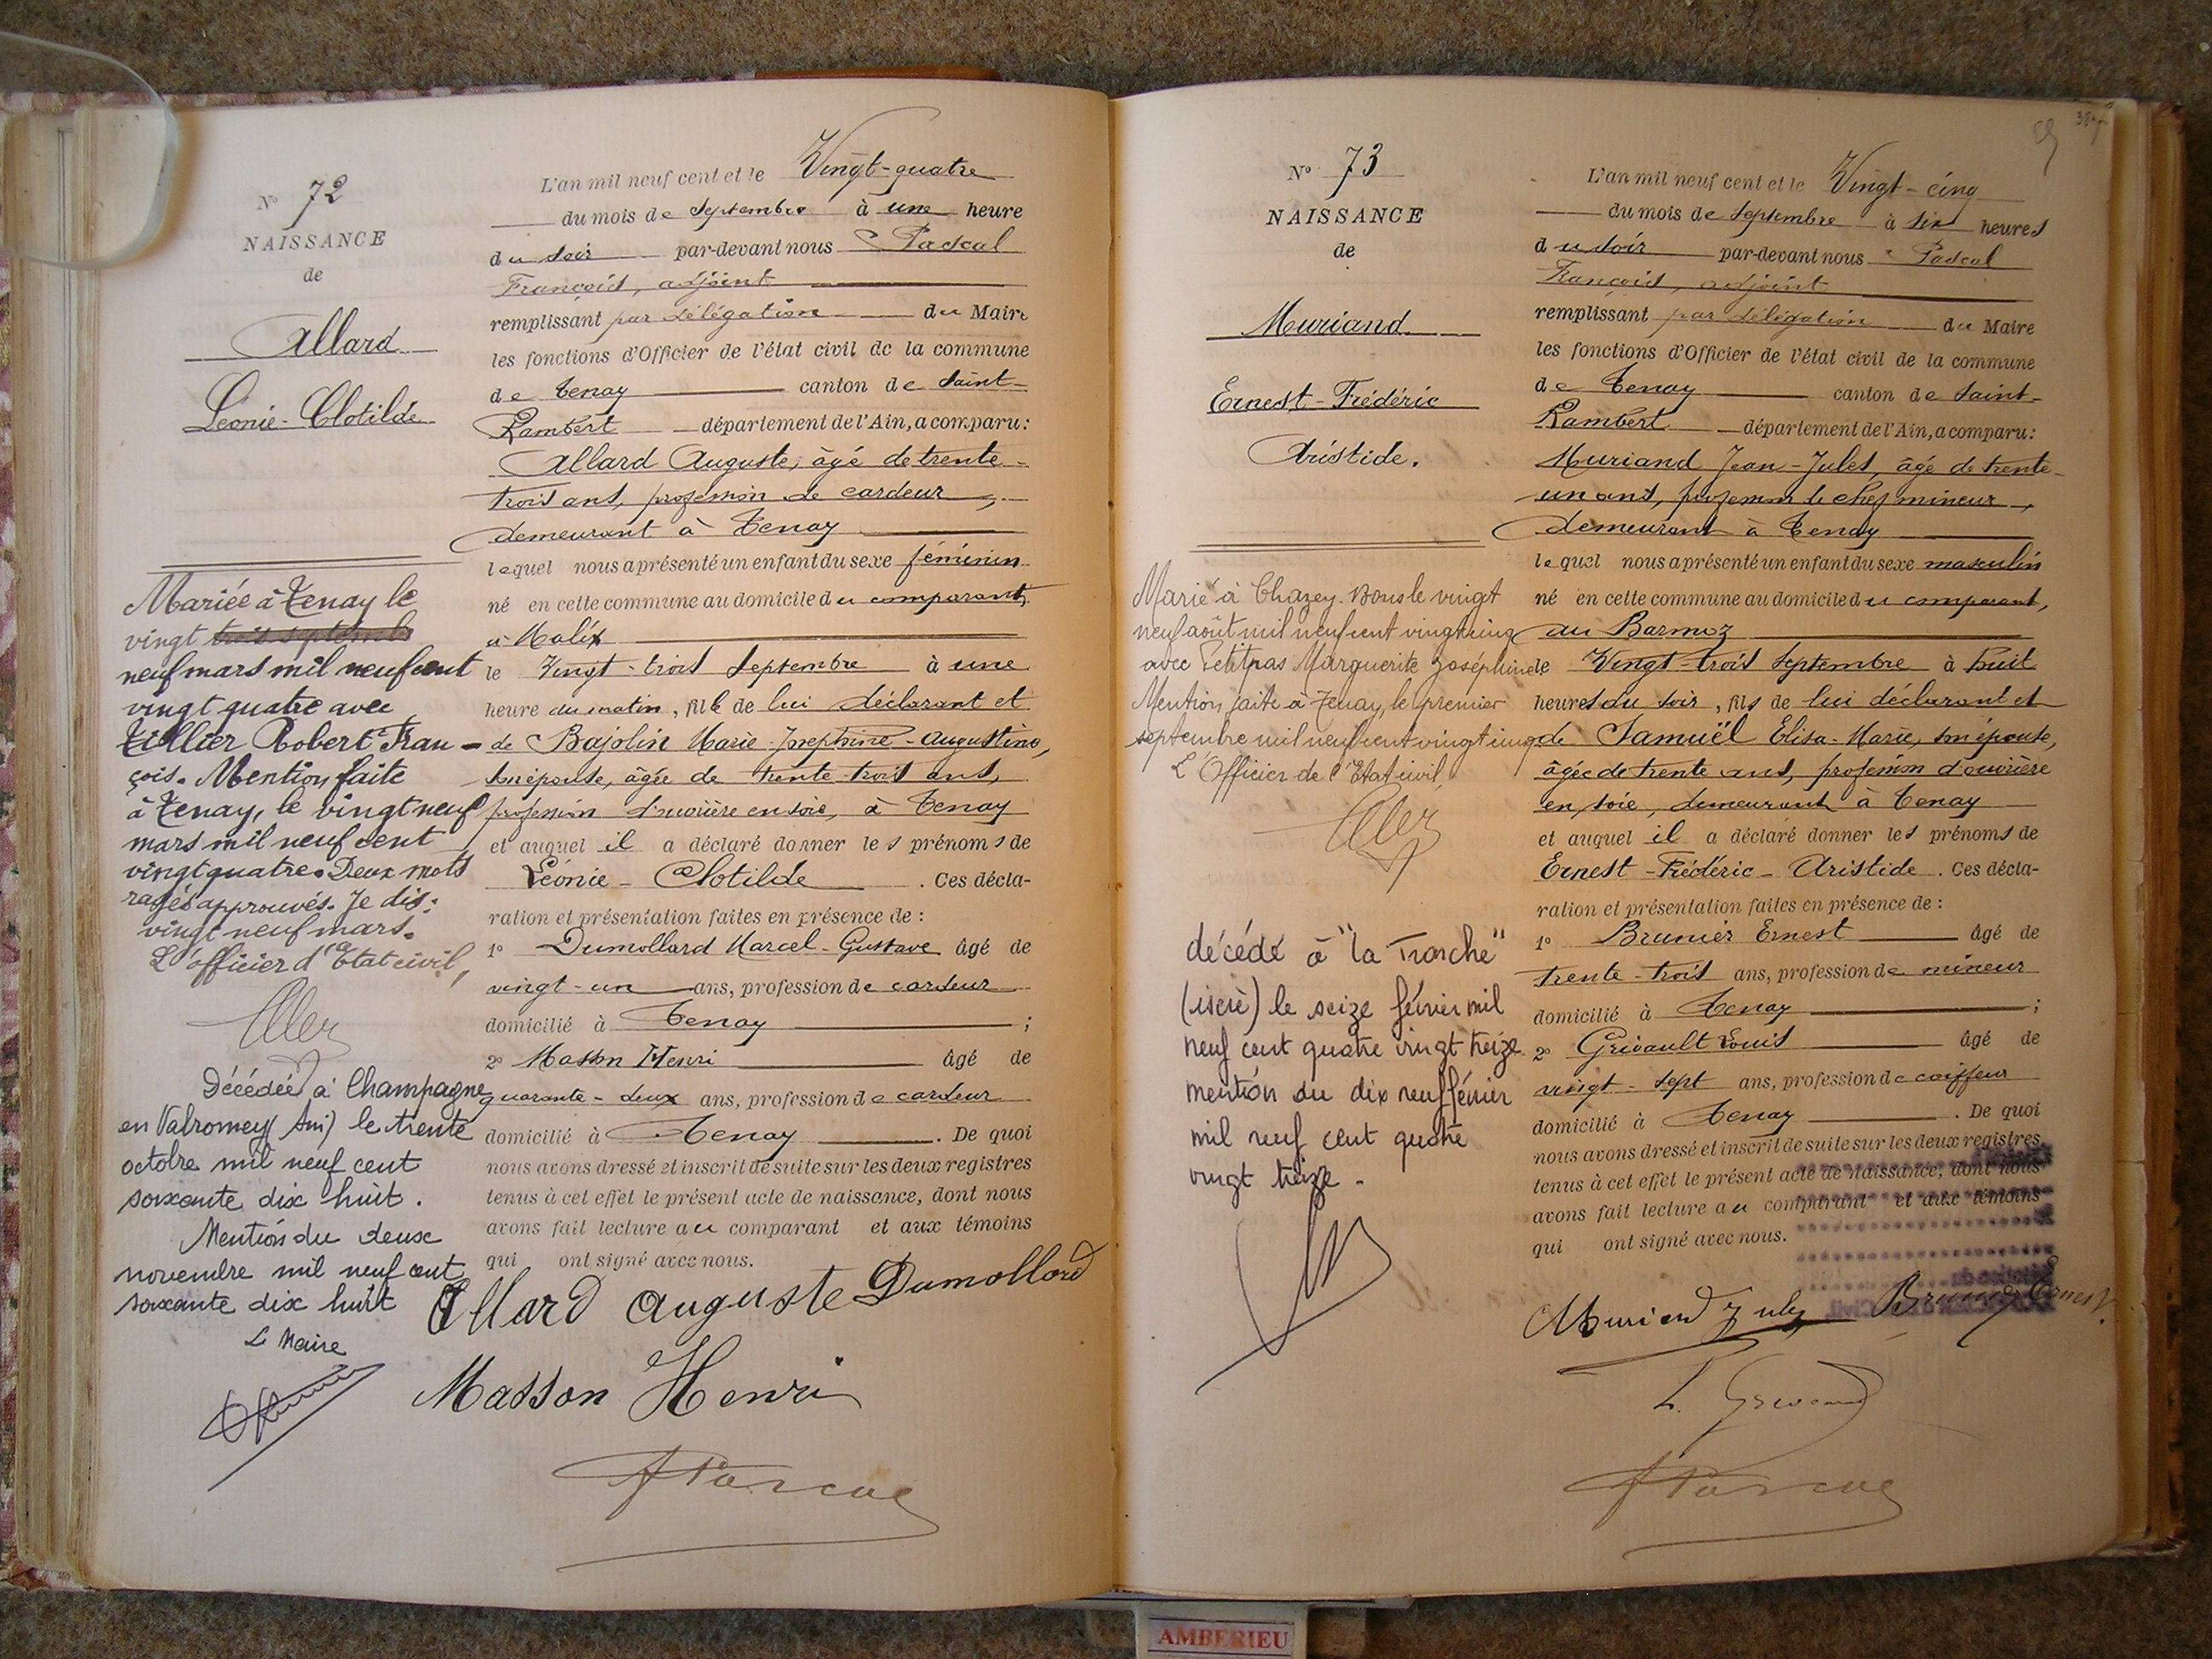 N° 72
NAISSANCE
de
Allard
Léonie-Clotilde
Mariée à Tenay le
vingt trois septembre
neuf mars mil neuf cent
vingt quatre avec
Tillier Robert Fran-
çois. Mention faite
à Tenay, le vingt neuf
mars mil neuf cent
vingt quatre. Deux mots
rayés approuvés. Je dis:
vingt neuf mars.
L'officier d'Etat civil,
Décédée à Champagne
en Valromey (Ain) le trente
octobre mil neuf cent
soixante dix huit.
Mention du deux
novembre mil neuf cent
soixante dix huit
Le Maire
L'an mil neuf cent et le Vingt-quatre
du mois de Septembre à une heure
du soir par-devant nous Pascal
François, adjoint
remplissant par délégation du Maire
les fonctions d'Officier de l'état civil de la commune
de Tenay canton de Saint-
Rambert département de l'Ain, a comparu:
Allard Auguste, âgé de trente-
trois ans, profession de cardeur,
demeurant à Tenay
lequel nous a présenté un enfant du sexe féminin
né en cette commune au domicile du comparant,
à Malix
le Vingt-trois Septembre à une
heure du matin, fille de lui déclarant et
de Bajolin Marie-Joséphine-Augustine,
son épouse, âgée de trente-trois ans,
profession d'ouvrière en soie, à Tenay
et auquel il a déclaré donner les prénoms de
Léonie-Clotilde. Ces décla-
ration et présentation faites en présence de:
1° Dumollard Marcel-Gustave âgé de
vingt-un ans, profession de cardeur
domicilié à Tenay;
2° Masson Henri âgé de
quarante-deux ans, profession de cardeur
domicilié à Tenay. De quoi
nous avons dressé et inscrit de suite sur les deux registres
tenus à cet effet le présent acte de naissance, dont nous
avons fait lecture au comparant et aux témoins
qui ont signé avec nous.
Allard Auguste Dumollard
Masson Henri
F Pascal
N° 73
NAISSANCE
de
Muriand
Ernest-Frédéric
Aristide.
Marié à Chazey-Bons le vingt
neuf août mil neuf cent vingt cinq
avec Petitpas Marguerite Joséphine
Mention faite à Tenay, le premier
septembre mil neuf cent vingt cinq
L'Officier de l'Etat civil,
décédé à "La Tronche"
(isère) le seize février mil
neuf cent quatre vingt treize
mention du dix neuf février
mil neuf cent quatre
vingt treize -
L'an mil neuf cent et le Vingt-cinq
du mois de Septembre à six heures
du soir par-devant nous Pascal
François, adjoint
remplissant par délégation du Maire
les fonctions d'Officier de l'état civil de la commune
de Tenay canton de Saint-
Rambert département de l'Ain, a comparu:
Muriand Jean-Jules, âgé de trente-
un ans, profession de chef mineur,
demeurant à Tenay
lequel nous a présenté un enfant du sexe masculin
né en cette commune au domicile du comparant,
au Barmoz
le Vingt-trois Septembre à huit
heures du soir, fils de lui déclarant et
de Samuël Elisa-Marie, son épouse,
âgée de trente ans, profession d'ouvrière
en soie, demeurant à Tenay
et auquel il a déclaré donner les prénoms de
Ernest-Frédéric-Aristide. Ces décla-
ration et présentation faites en présence de:
1° Brunier Ernest âgé de
trente-trois ans, profession de mineur
domicilié à Tenay;
2° Grivault Louis âgé de
vingt-sept ans, profession de coiffeur
domicilié à Tenay. De quoi
nous avons dressé et inscrit de suite sur les deux registres
tenus à cet effet le présent acte de naissance, dont nous
avons fait lecture au comparant et aux témoins
qui ont signé avec nous.
Muriand Jules Brunier Ernest
F Pascal
AMBERIEU